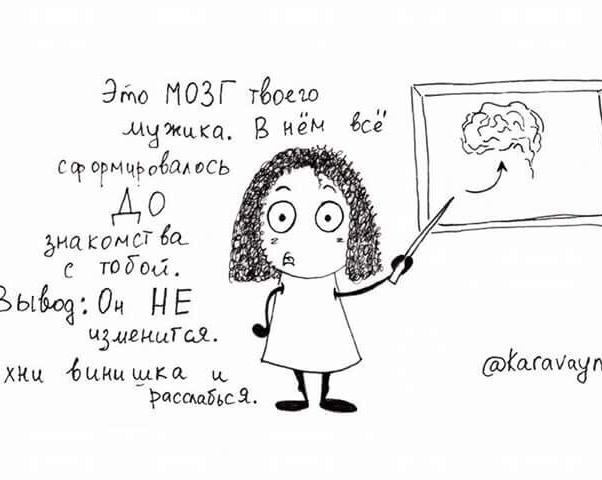 Это МОЗГ твоего
мужика. В нём всё
сформировалось
ДО
знакомства
с тобой.
Вывод: Он НЕ
изменится.
хни винишка и
расслабься.
@karavayn